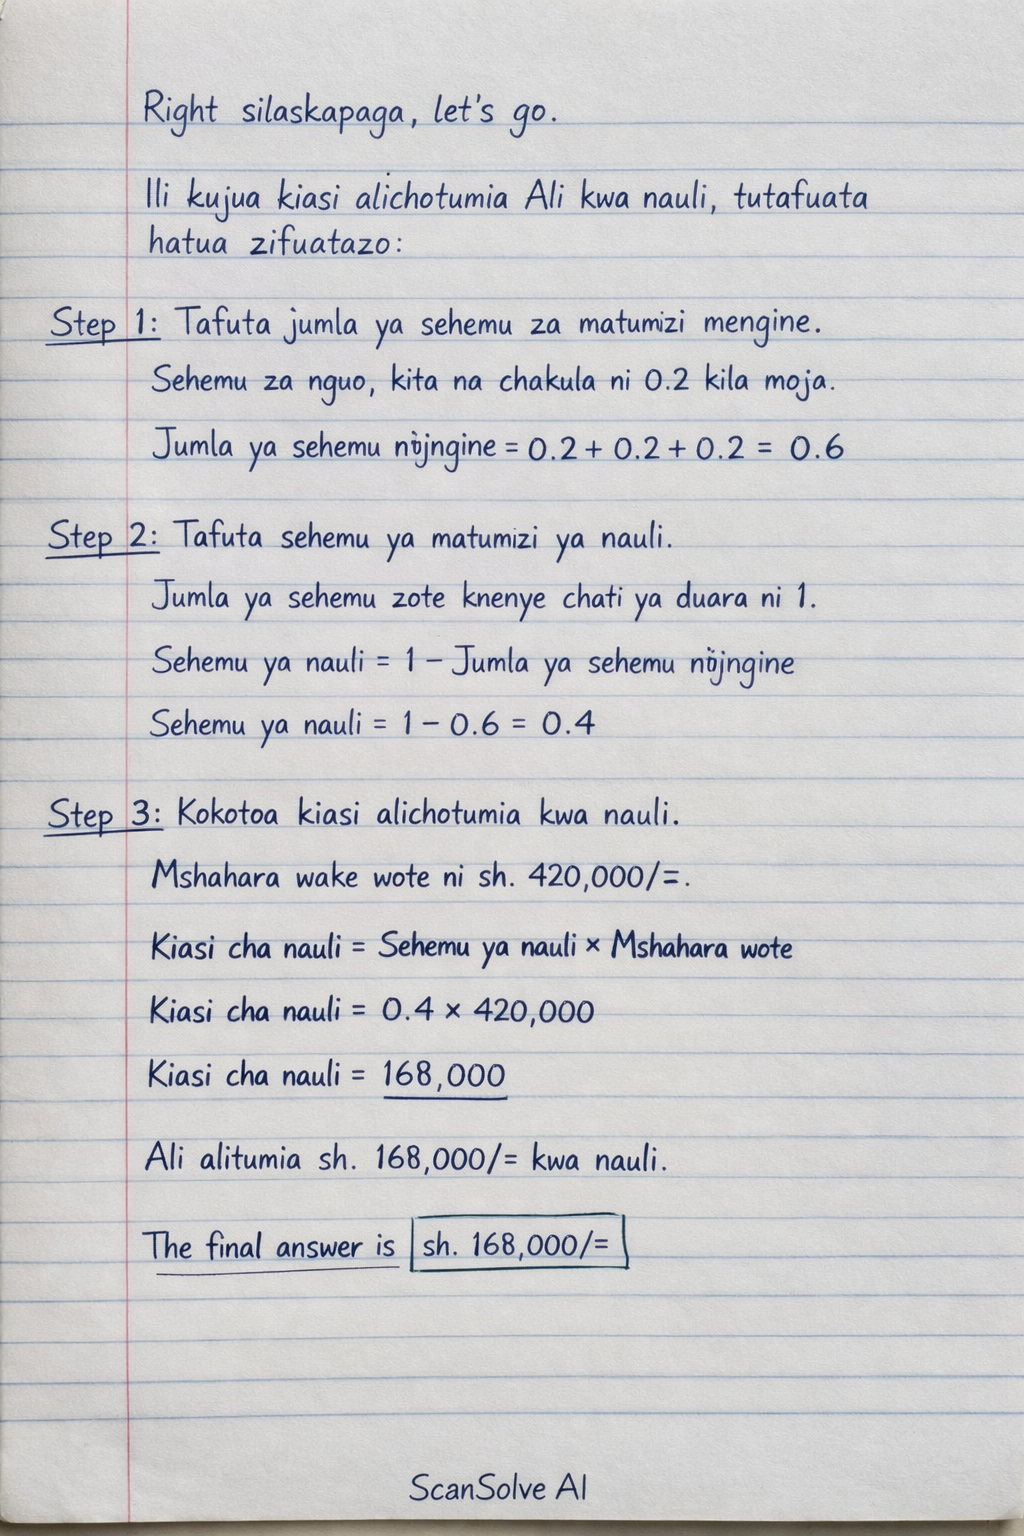 Right silaskapaga, let's go.
Ili kujua kiasi alichotumia Ali kwa nauli, tutafuata
hatua zifuatazo:
Step 1: Tafuta jumla ya sehemu za matumizi mengine.
Sehemu za nguo, kita na chakula ni 0.2 kila moja.
Jumla ya sehemu = 0.2 + 0.2 + 0.2 = 0.6
Step 2: Tafuta sehemu ya matumizi ya nauli.
Jumla ya sehemu zote knenye chati ya duara ni 1.
Sehemu ya nauli = 1 − Jumla ya sehemu
Sehemu ya nauli = 1 − 0.6 = 0.4
Step 3: Kokotoa kiasi alichotumia kwa nauli.
Mshahara wake wote ni sh. 420,000/=.
Kiasi cha nauli = Sehemu ya nauli × Mshahara wote
Kiasi cha nauli = 0.4 × 420,000
Kiasi cha nauli = 168,000
Ali alitumia sh. 168,000/= kwa nauli.
The final answer is sh. 168,000/=
ScanSolve AI